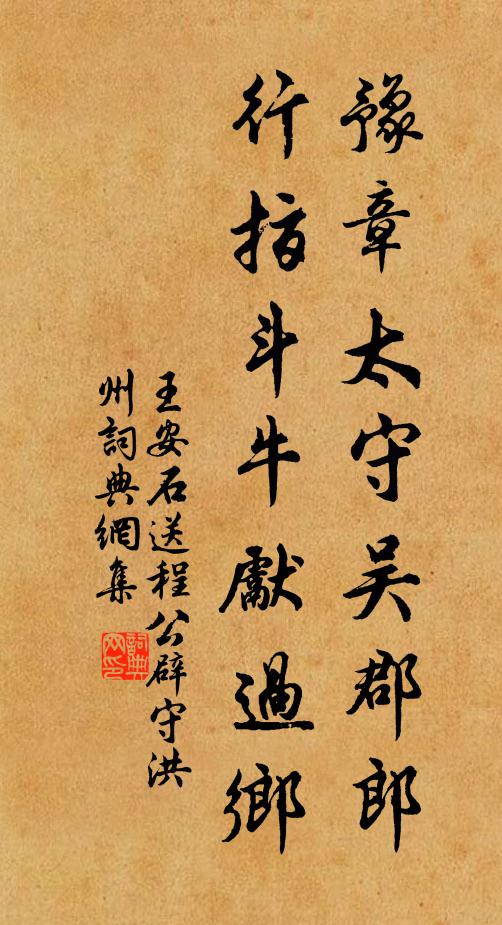 豫章太守吴郡郎
行指斗牛獻過鄉
王安石送程公辟守洪
州詞典網集
詞典网印